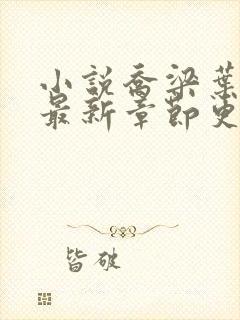 小説喬梁葉
最新章節更
皆破